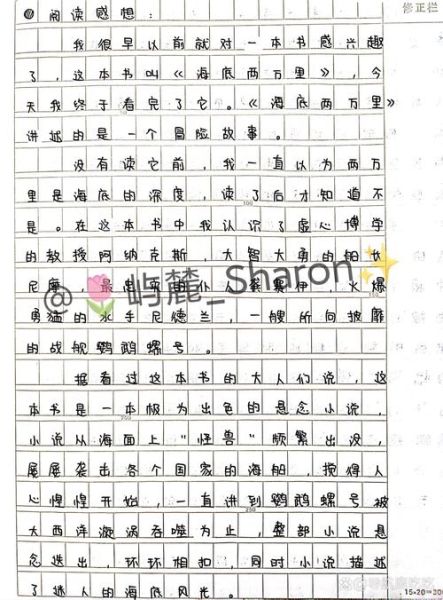 阅读感想：
修正栏
我很早以前就对一本书感兴趣
了，这本书叫《海底两万里》，今
天我终于看完了它。《海底两万里》
讲述的是一个冒险故事。
没有读它前，我一直以为两万
里是海底的深度，读了后才知道不
是。在这本书中我认识了虚心博学
的教授阿纳克斯，大智大勇的船长
尼摩，最忠实的仆人龚赛伊，火爆
@屿麓_Sharon
勇猛的水手尼德兰，一艘所向披靡
的战舰鹦鹉螺号。
据看过这本书的大人们说，这
本书是一本极为出色的悬念小说，
小说从海面上“怪兽”频繁出没，
屡屡袭击各个国家的海船，搅得人
心惶惶开始，一直讲到鹦鹉螺号被
大西洋漩涡吞噬为止，整部小说悬
念迭出，环环相扣，同时小说描述
了迷人的海底风光。
15×20=300